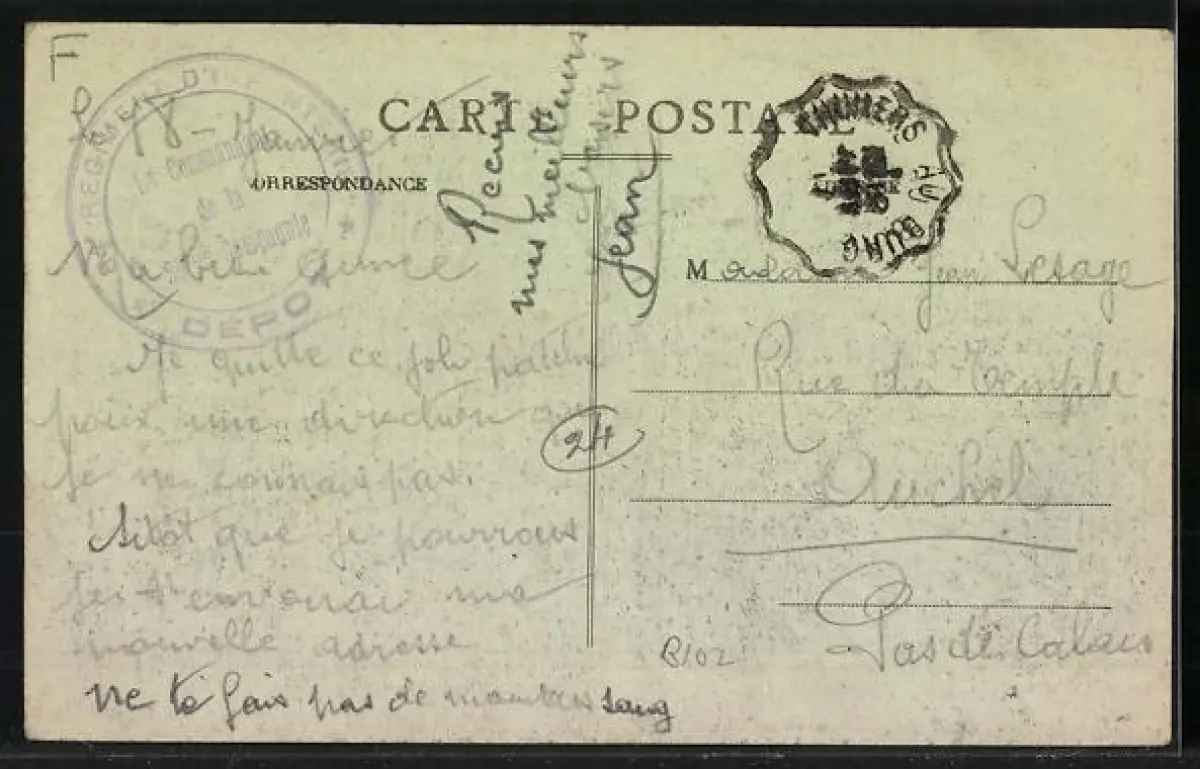 F
CARTE POSTALE
CORRESPONDANCE
Le 18 - Janvier
REGIMENT D'INFANTERIE
Le Commandant
de la
DEPOT
Ma bien aimée
Je quitte ce joli patelin
pour une direction
je ne connais pas.
Aitôt que je pourrous
je t'envouai ma
nouvelle adresse
ne te fais pas de mauvais sang
Recens
mes meilleurs
Baisers
Jean
24
THIVIERS
BOURG
Madame Jean Lesage
Rue du Temple
Auchel
Pas de Calais
B102